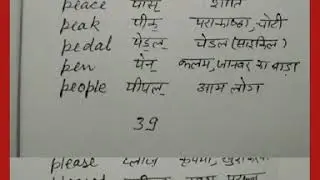 peace पीस् शांति
peak पीक् पराकाष्ठा, चोटी
pedal पेडल् पेडल (साइकिल)
pen पेन् कलम, जानवर का बाड़ा
people पीपल् आम लोग
39
please प्लीज़ कृपया,